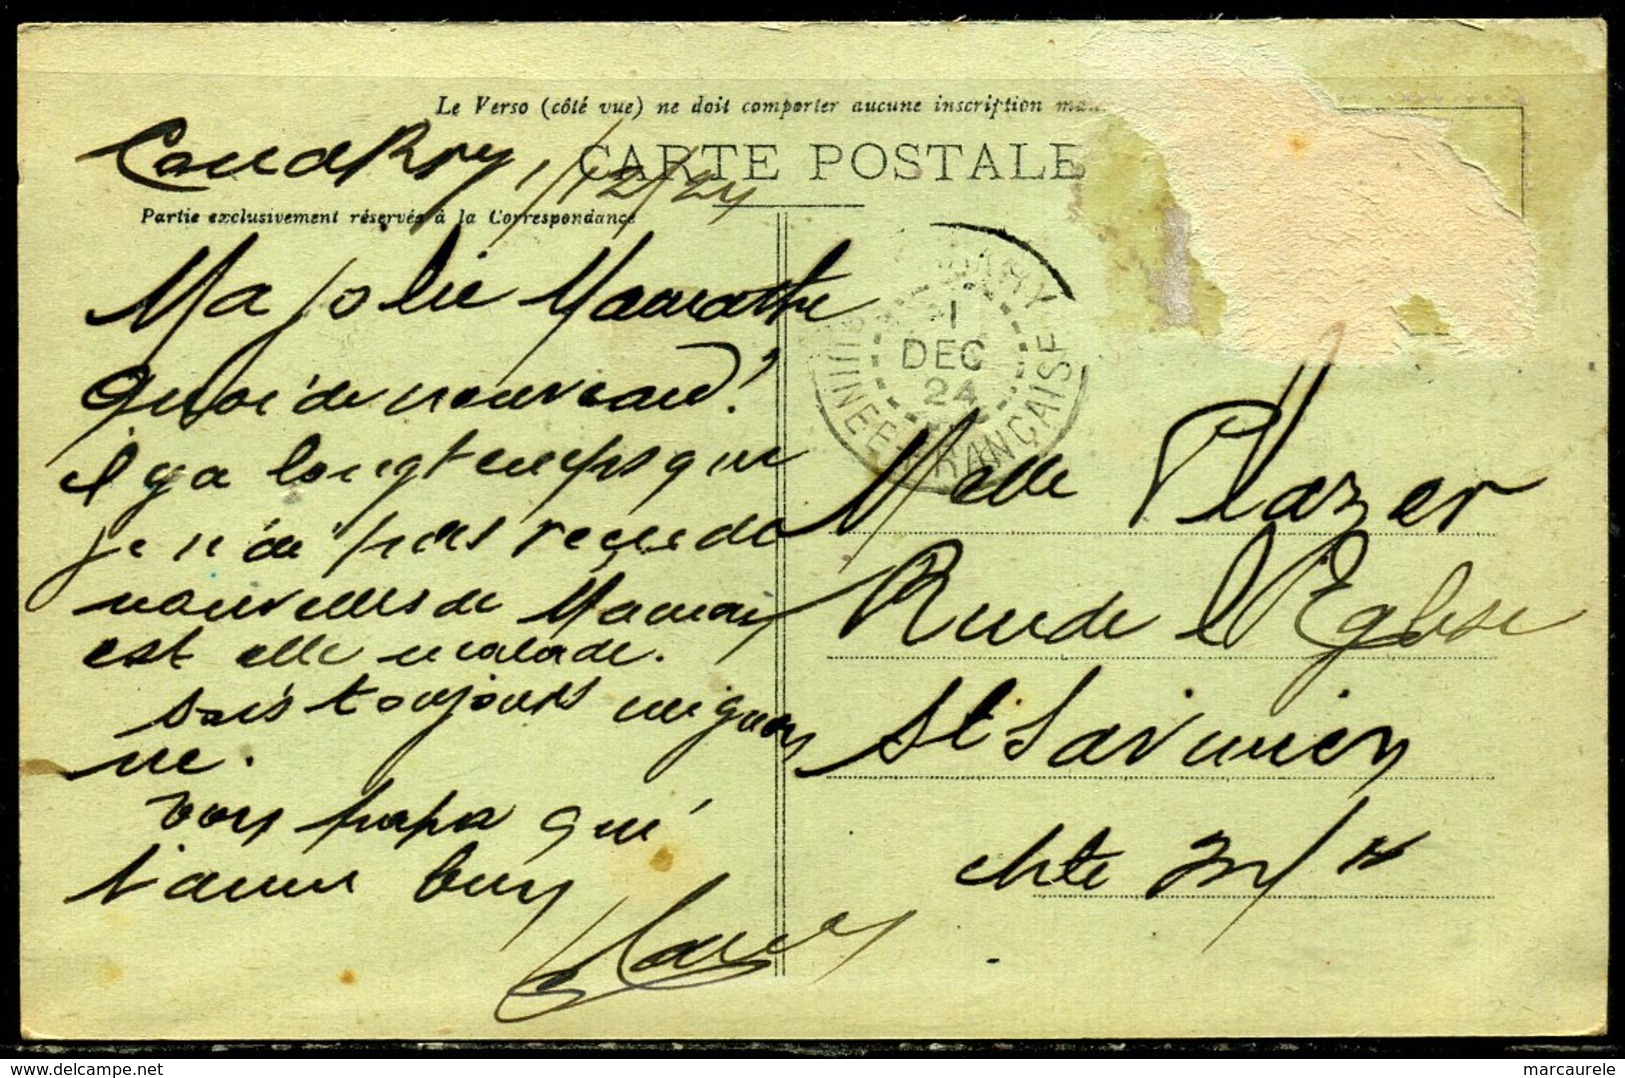 Le Verso (côté vue) ne doit comporter aucune inscription
CARTE POSTALE
Conakry, 1/12/24
Partie exclusivement réservée à la Correspondance
Ma jolie
quoi de nouveau?
il y a longtemps que
je n'ai pas reçu de
nouvelles de Maman
est elle malade.
sois toujours mignon
ne.
ton papa qui
t'aime bien
CONAKRY
1
DEC
24
GUINEE FRANÇAISE
Melle Plazer
Rue de l'Eglise
St Savinien
chte Infre
marcaurele